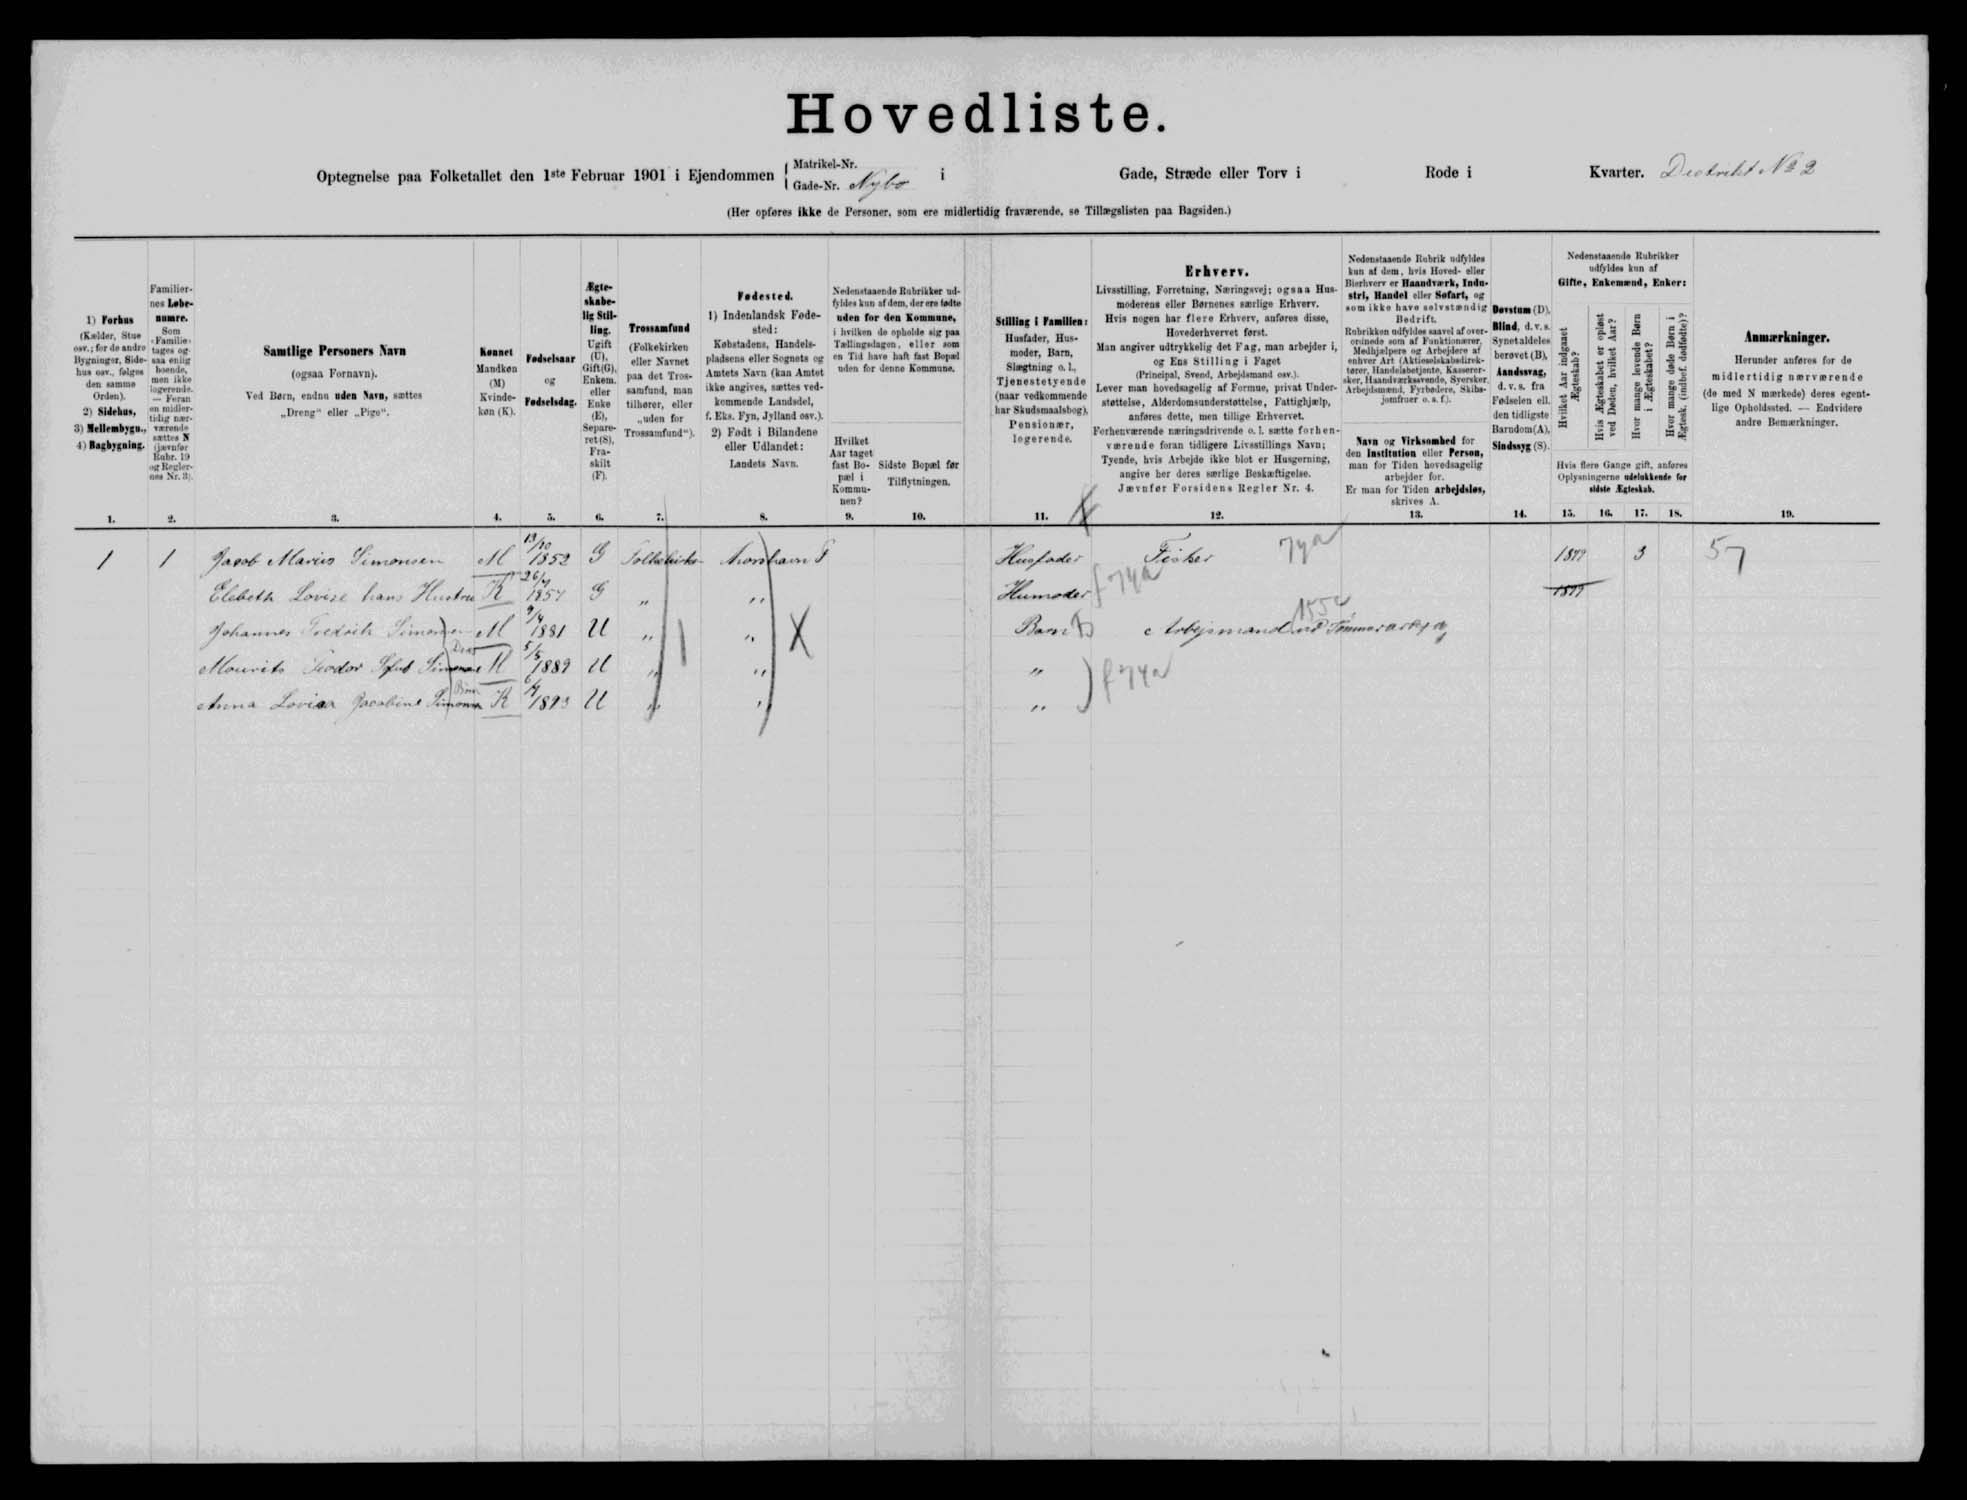 Hovedliste.
Optegnelse paa Folketallet den 1ste Februar 1901 i Ejendommen { Matrikel-Nr. Gade-Nr. Nybo i Gade, Stræde eller Torv i Rode i Kvarter. Destrikt No 2
(Her opføres ikke de Personer, som ere midlertidig fraværende, se Tillægslisten paa Bagsiden.)
1) Forhus (Kælder, Stue osv.; for de andre Bygninger, Sidehus osv., følges den samme Orden). 2) Sidehus, 3) Mellembygn., 4) Bagbygning.
Familiernes Løbenumre. Som «Familie» tages ogsaa enlig boende, men ikke logerende. — Foran en midlertidig nærværende sættes N (jævnfør Rubr. 19 og Reglernes Nr. 3).
Samtlige Personers Navn (ogsaa Fornavn). Ved Børn, endnu uden Navn, sættes „Dreng“ eller „Pige“.
Kønnet Mandkøn (M) Kvindekøn (K).
Fødselsaar og Fødselsdag.
Ægteskabelig Stilling. Ugift (U), Gift(G), Enkem. eller Enke (E), Separeret(S), Fraskilt (F).
Trossamfund (Folkekirken eller Navnet paa det Trossamfund, man tilhører, eller „uden for Trossamfund“).
Fødested. 1) Indenlandsk Fødested: Købstadens, Handelspladsens eller Sognets og Amtets Navn (kan Amtet ikke angives, sættes vedkommende Landsdel, f. Eks. Fyn, Jylland osv.). 2) Født i Bilandene eller Udlandet: Landets Navn.
Nedenstaaende Rubrikker udfyldes kun af dem, der ere fødte uden for den Kommune, i hvilken de opholde sig paa Tællingsdagen, eller som en Tid have haft fast Bopæl uden for denne Kommune.
Hvilket Aar taget fast Bopæl i Kommunen?
Sidste Bopæl før Tilflytningen.
Stilling i Familien: Husfader, Husmoder, Barn, Slægtning o. l., Tjenestetyende (naar vedkommende har Skudsmaalsbog), Pensionær, logerende.
Erhverv. Livsstilling, Forretning, Næringsvej; ogsaa Husmoderens eller Børnenes særlige Erhverv. Hvis nogen har flere Erhverv, anføres disse, Hovederhvervet først. Man angiver udtrykkelig det Fag, man arbejder i, og Ens Stilling i Faget (Principal, Svend, Arbejdsmand osv.). Lever man hovedsagelig af Formue, privat Understøttelse, Alderdomsunderstøttelse, Fattighjælp, anføres dette, men tillige Erhvervet. Forhenværende næringsdrivende o. l. sætte forhenværende foran tidligere Livsstillings Navn; Tyende, hvis Arbejde ikke blot er Husgerning, angive her deres særlige Beskæftigelse. Jævnfør Forsidens Regler Nr. 4.
Nedenstaaende Rubrik udfyldes kun af dem, hvis Hoved- eller Bierhverv er Haandværk, Industri, Handel eller Søfart, og som ikke have selvstændig Bedrift. Rubrikken udfyldes saavel af overordnede som af Funktionærer, Medhjælpere og Arbejdere af enhver Art (Aktieselskabsdirektører, Handelsbetjente, Kasserersker, Haandværkssvende, Syersker, Arbejdsmænd, Fyrbødere, Skibsjomfruer o. s. f.).
Navn og Virksomhed for den Institution eller Person, man for Tiden hovedsagelig arbejder for. Er man for Tiden arbejdsløs, skrives A.
Døvstum (D), Blind, d. v. s. Synet aldeles berøvet (B), Aandssvag, d. v. s. fra Fødselen ell. den tidligste Barndom(A), Sindssyg (S).
Nedenstaaende Rubrikker udfyldes kun af Gifte, Enkemænd, Enker:
Hvilket Aar indgaaet Ægteskab?
Hvis Ægteskabet er opløst ved Døden, hvilket Aar?
Hvor mange levende Børn i Ægteskabet?
Hvor mange døde Børn i Ægtesk. (indbef. dødfødte)?
Hvis flere Gange gift, anføres Oplysningerne udelukkende for sidste Ægteskab.
Anmærkninger. Herunder anføres for de midlertidig nærværende (de med N mærkede) deres egentlige Opholdssted. — Endvidere andre Bemærkninger.
1. 2. 3. 4. 5. 6. 7. 8. 9. 10. 11. 12. 13. 14. 15. 16. 17. 18. 19.
1 1 Jacob Marius Simonsen M 13/10 1852 G Folkekirken Thorshavn Husfader Fisker 74a 3 57
Elsbeth Lovise hans Hustru K G „ „ Husmoder f 74a
Johannes Fredrik Simonsen M 1881 U „ „ Barn Arbejsmand
Mourits M 5/5 1889 U „ „ „ f 74a
Anna Lovisa Jacobine Simonsen K 1893 U „ „ „